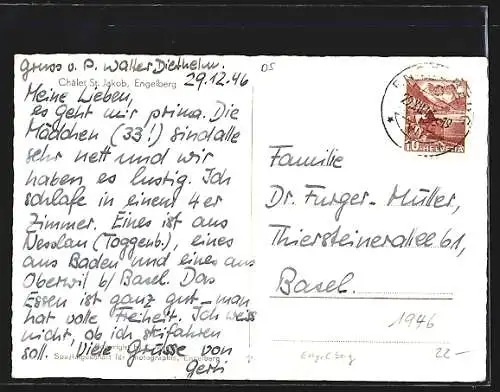 Gruss v. P. Walter Diethelm.
Châlet St. Jakob, Engelberg
29.12.46
Meine Lieben,
es geht mir prima. Die
Mädchen (33!) sind alle
sehr nett und wir
haben es lustig. Ich
schlafe in einem 4er
Zimmer. Eines ist aus
Nesslau (Toggenb.), eines
aus Baden und eines aus
Oberwil b/ Basel. Das
Essen ist ganz gut - man
hat volle Freiheit. Ich weiss
nicht, ob ich skifahren
soll. Viele Grüsse von
Gerti.
Engelberg
05
10 HELVETIA
Familie
Dr. Furger-Müller,
Thiersteinerallee 61,
Basel.
1946
Engelberg
22-